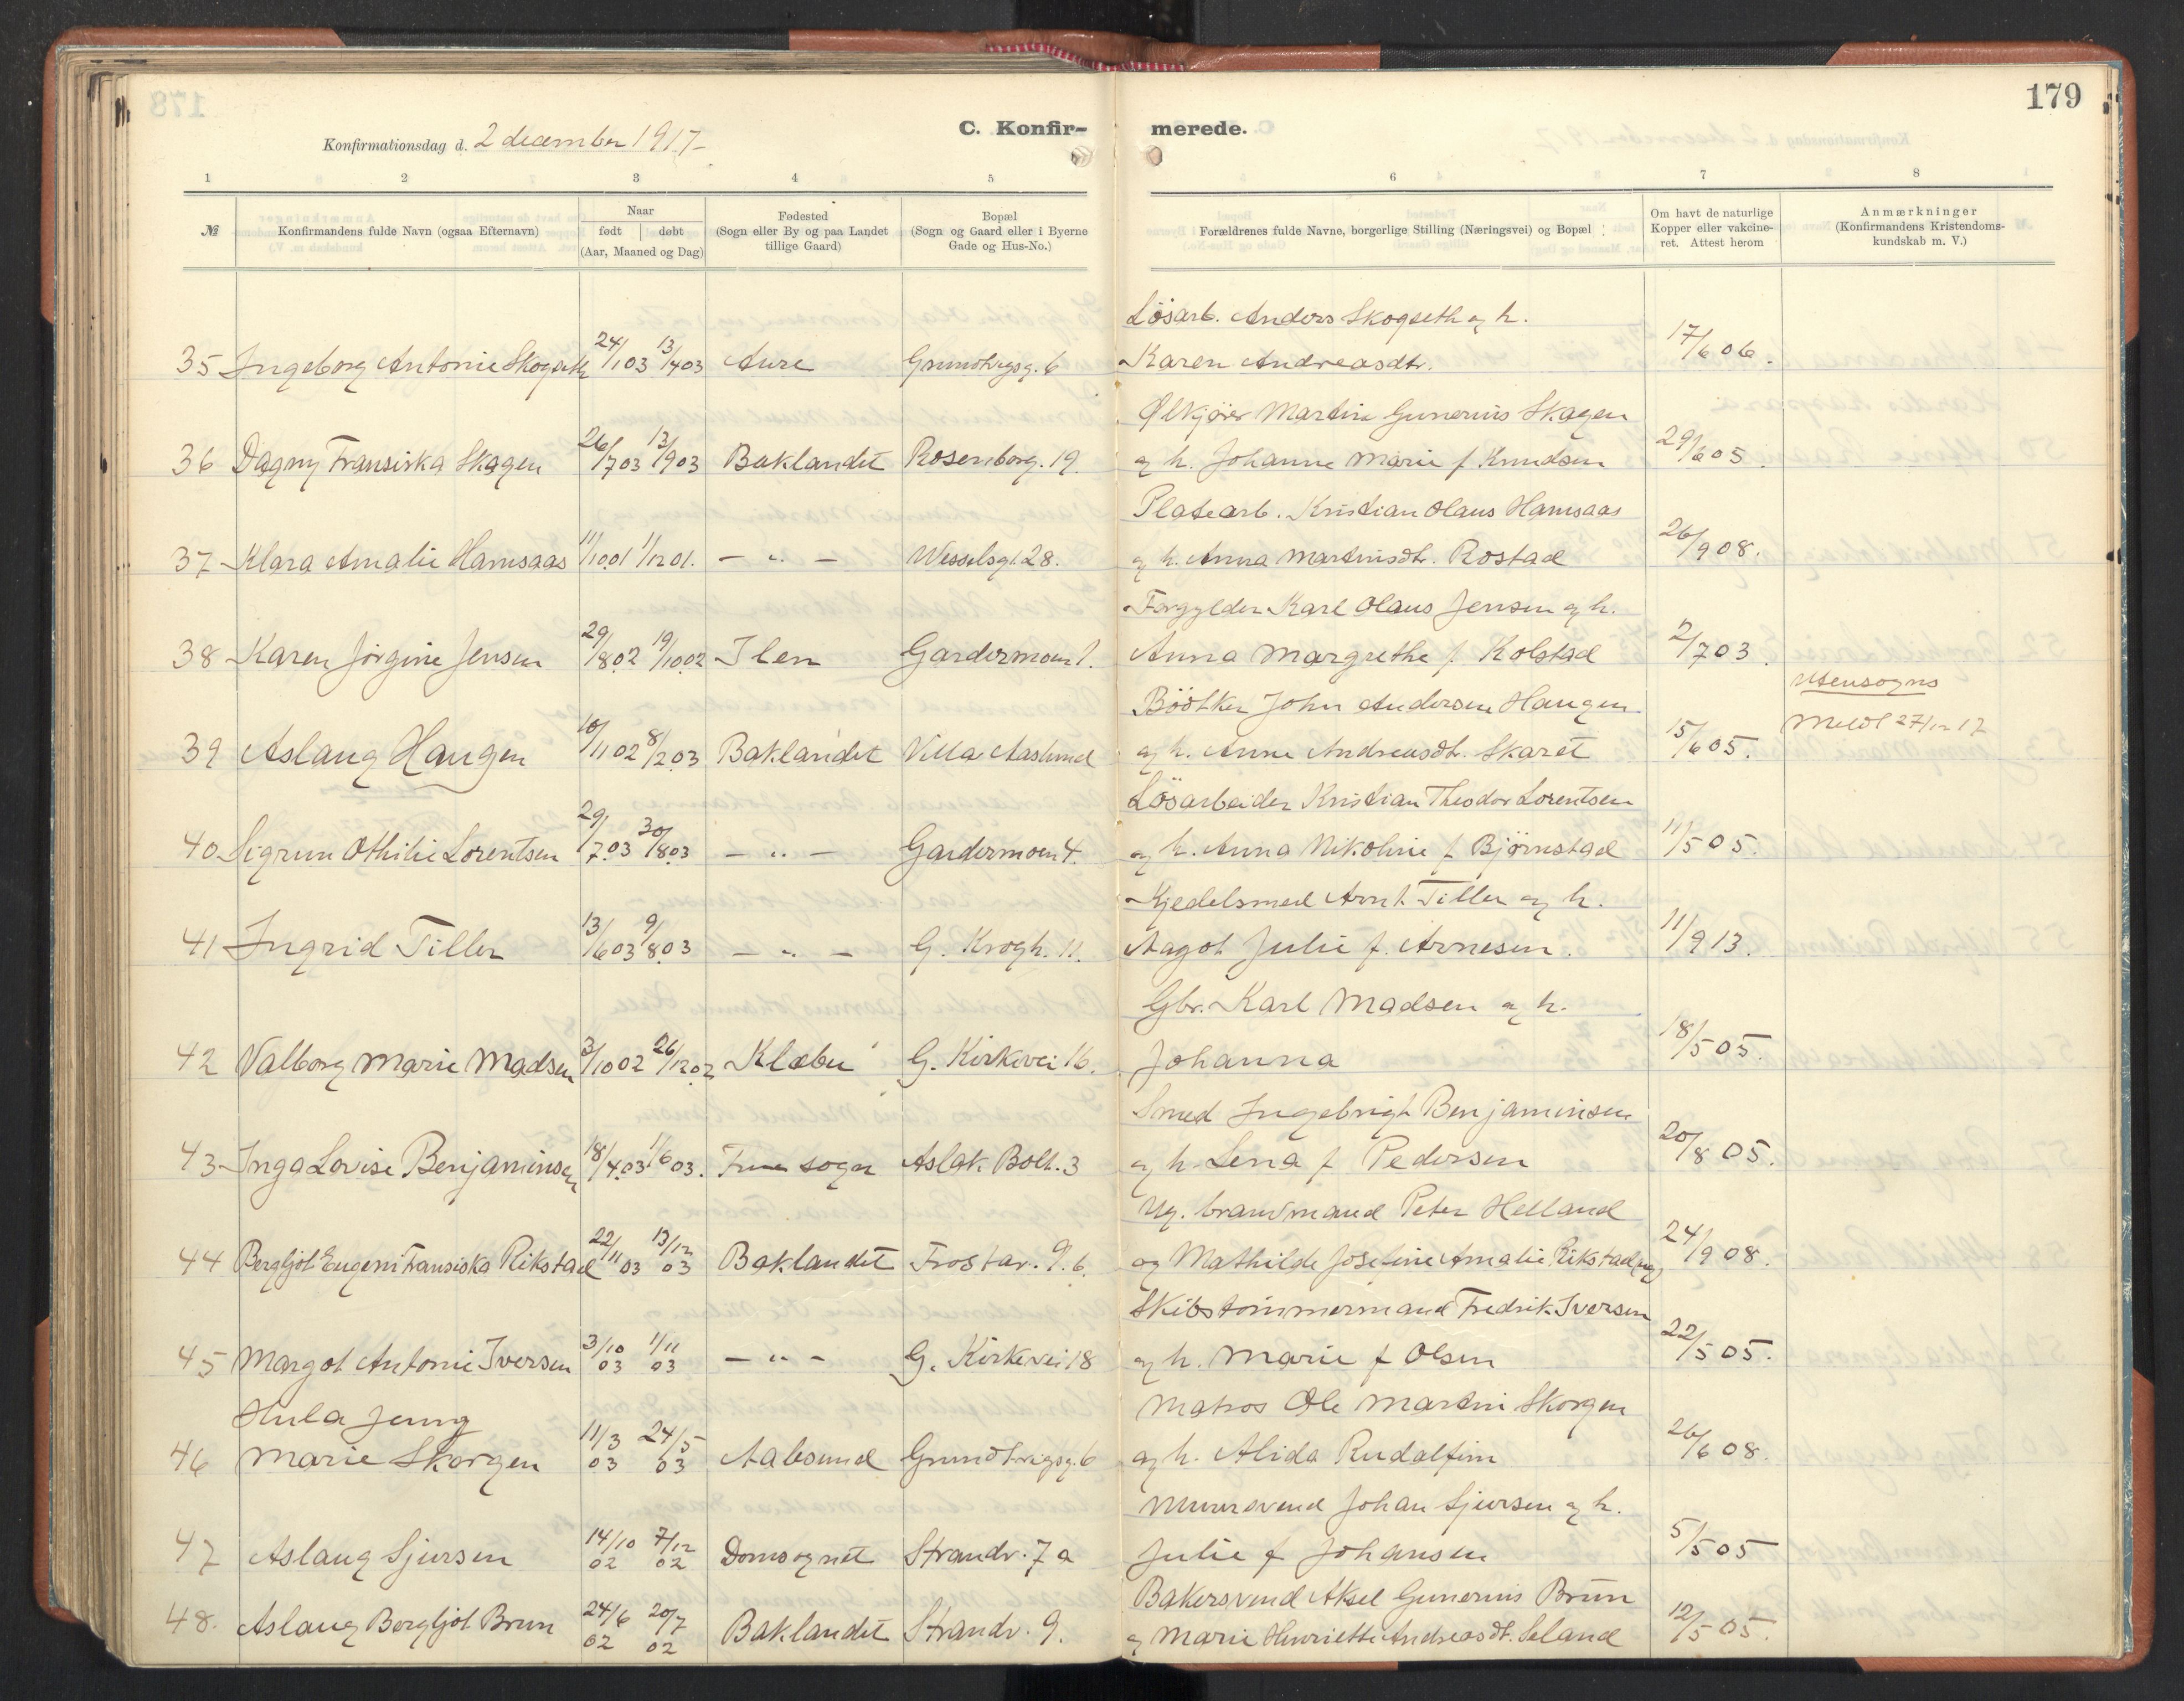 179
C. Konfir-
merede.
Konfirmationsdag d. 2 december 1917
1 2 3 4 5 6 7 8
№
Konfirmandens fulde Navn (ogsaa Efternavn)
Naar
født
døbt
(Aar, Maaned og Dag)
Fødested
(Sogn eller By og paa Landet
tillige Gaard)
Bopæl
(Sogn og Gaard eller i Byerne
Gade og Hus-No.)
Forældrenes fulde Navne, borgerlige Stilling (Næringsvei) og Bopæl
Om havt de naturlige
Kopper eller vakcine-
ret. Attest herom
Anmærkninger
(Konfirmandens Kristendoms-
kundskab m. V.)
Løsarb. Anders Skogseth og h.
35 Ingeborg Antonie Skogseth 24/1 03 13/4 03 Aure Grundtvigsg. 6 Karen Andreasdtr. 17/6 06.
Ølkjører Martin Gunerius Skagen
36 Dagny Fransiska Skagen 26/7 03 13/9 03 Baklandet Rosenborg. 19. og h. Johanne Marie f. Knudsen 29/6 05.
Platearb. Kristian Olaus Hamsaas
37 Klara Amalie Hamsaas 11/10 01 1/12 01. — " — Wesselsgt. 28. og h. Anna Martinusdt. Rostad 26/9 08.
Forgylder Karl Olaus Jensen og h.
38 Karen Jørgine Jensen 29/8 02 19/10 02 Ilen Gardermoen 1. Anna Margrethe f. Kolstad 2/7 03.
Utensogns
Bødtker John Andersen Haugen
39 Aslaug Haugen 10/11 02 8/2 03 Baklandet Villa Aaslund og h. Anne Andreasdt. Skaret 15/6 05. Meldt 27/12 17
Løsarbeider Kristian Theodor Lorentsen
40 Sigrun Othilie Lorentsen 29/7 03 30/8 03 — " — Gardermoen 4. og h. Anna Nikoline f. Bjørnstad 11/5 05.
Kjedelsmed Arnt Tiller og h.
41 Ingrid Tiller 13/6 03 9/8 03 — " — G. Krogh. 11. Aagot Julie f. Arnesen. 11/9 13.
Gbr. Karl Madsen og h.
42 Valborg Marie Madsen 3/10 02 26/12 02 Klæbu G. Kirkevei 16. Johanna 18/5 05.
Smed Ingebrigt Benjaminsen
43 Inga Lovise Benjaminsen 18/4 03 1/6 03. Frue sogn Aslak Bolt. 3 og h. Lena f. Pedersen 20/8 05.
Ug. brandmand Peter Helland
44 Bergljot Eugeni Fransiska Rikstad 22/11 03 13/12 03 Baklandet Frostav. 9.6. og Mathilde Josefine Amalie Rikstad (ug) 24/9 08.
Skibstømmermand Fredrik Iversen
45 Margot Antonie Iversen 3/10 03 1/11 03 — " — G. Kirkevei 18 og h. Marie f. Olsen 22/5 05.
Hula Jenny
Matros Ole Martin Skorgen
46 Marie Skorgen 11/3 03 24/5 03 Aalesund Grundtvigsg. 6 og h. Alida Rudalfine 26/6 08.
Murersvend Johan Sjursen og h.
47 Aslaug Sjursen 14/10 02 7/12 02 Domsognet Strandv. 7 a Julie f. Johansen 5/5 05
Bakersvend Aksel Gunerius Brun
48. Aslaug Bergljot Brun 24/6 02 20/7 02 Baklandet Strandv. 9. og Marie Henriette Andreasdt. Seland 12/5 05.